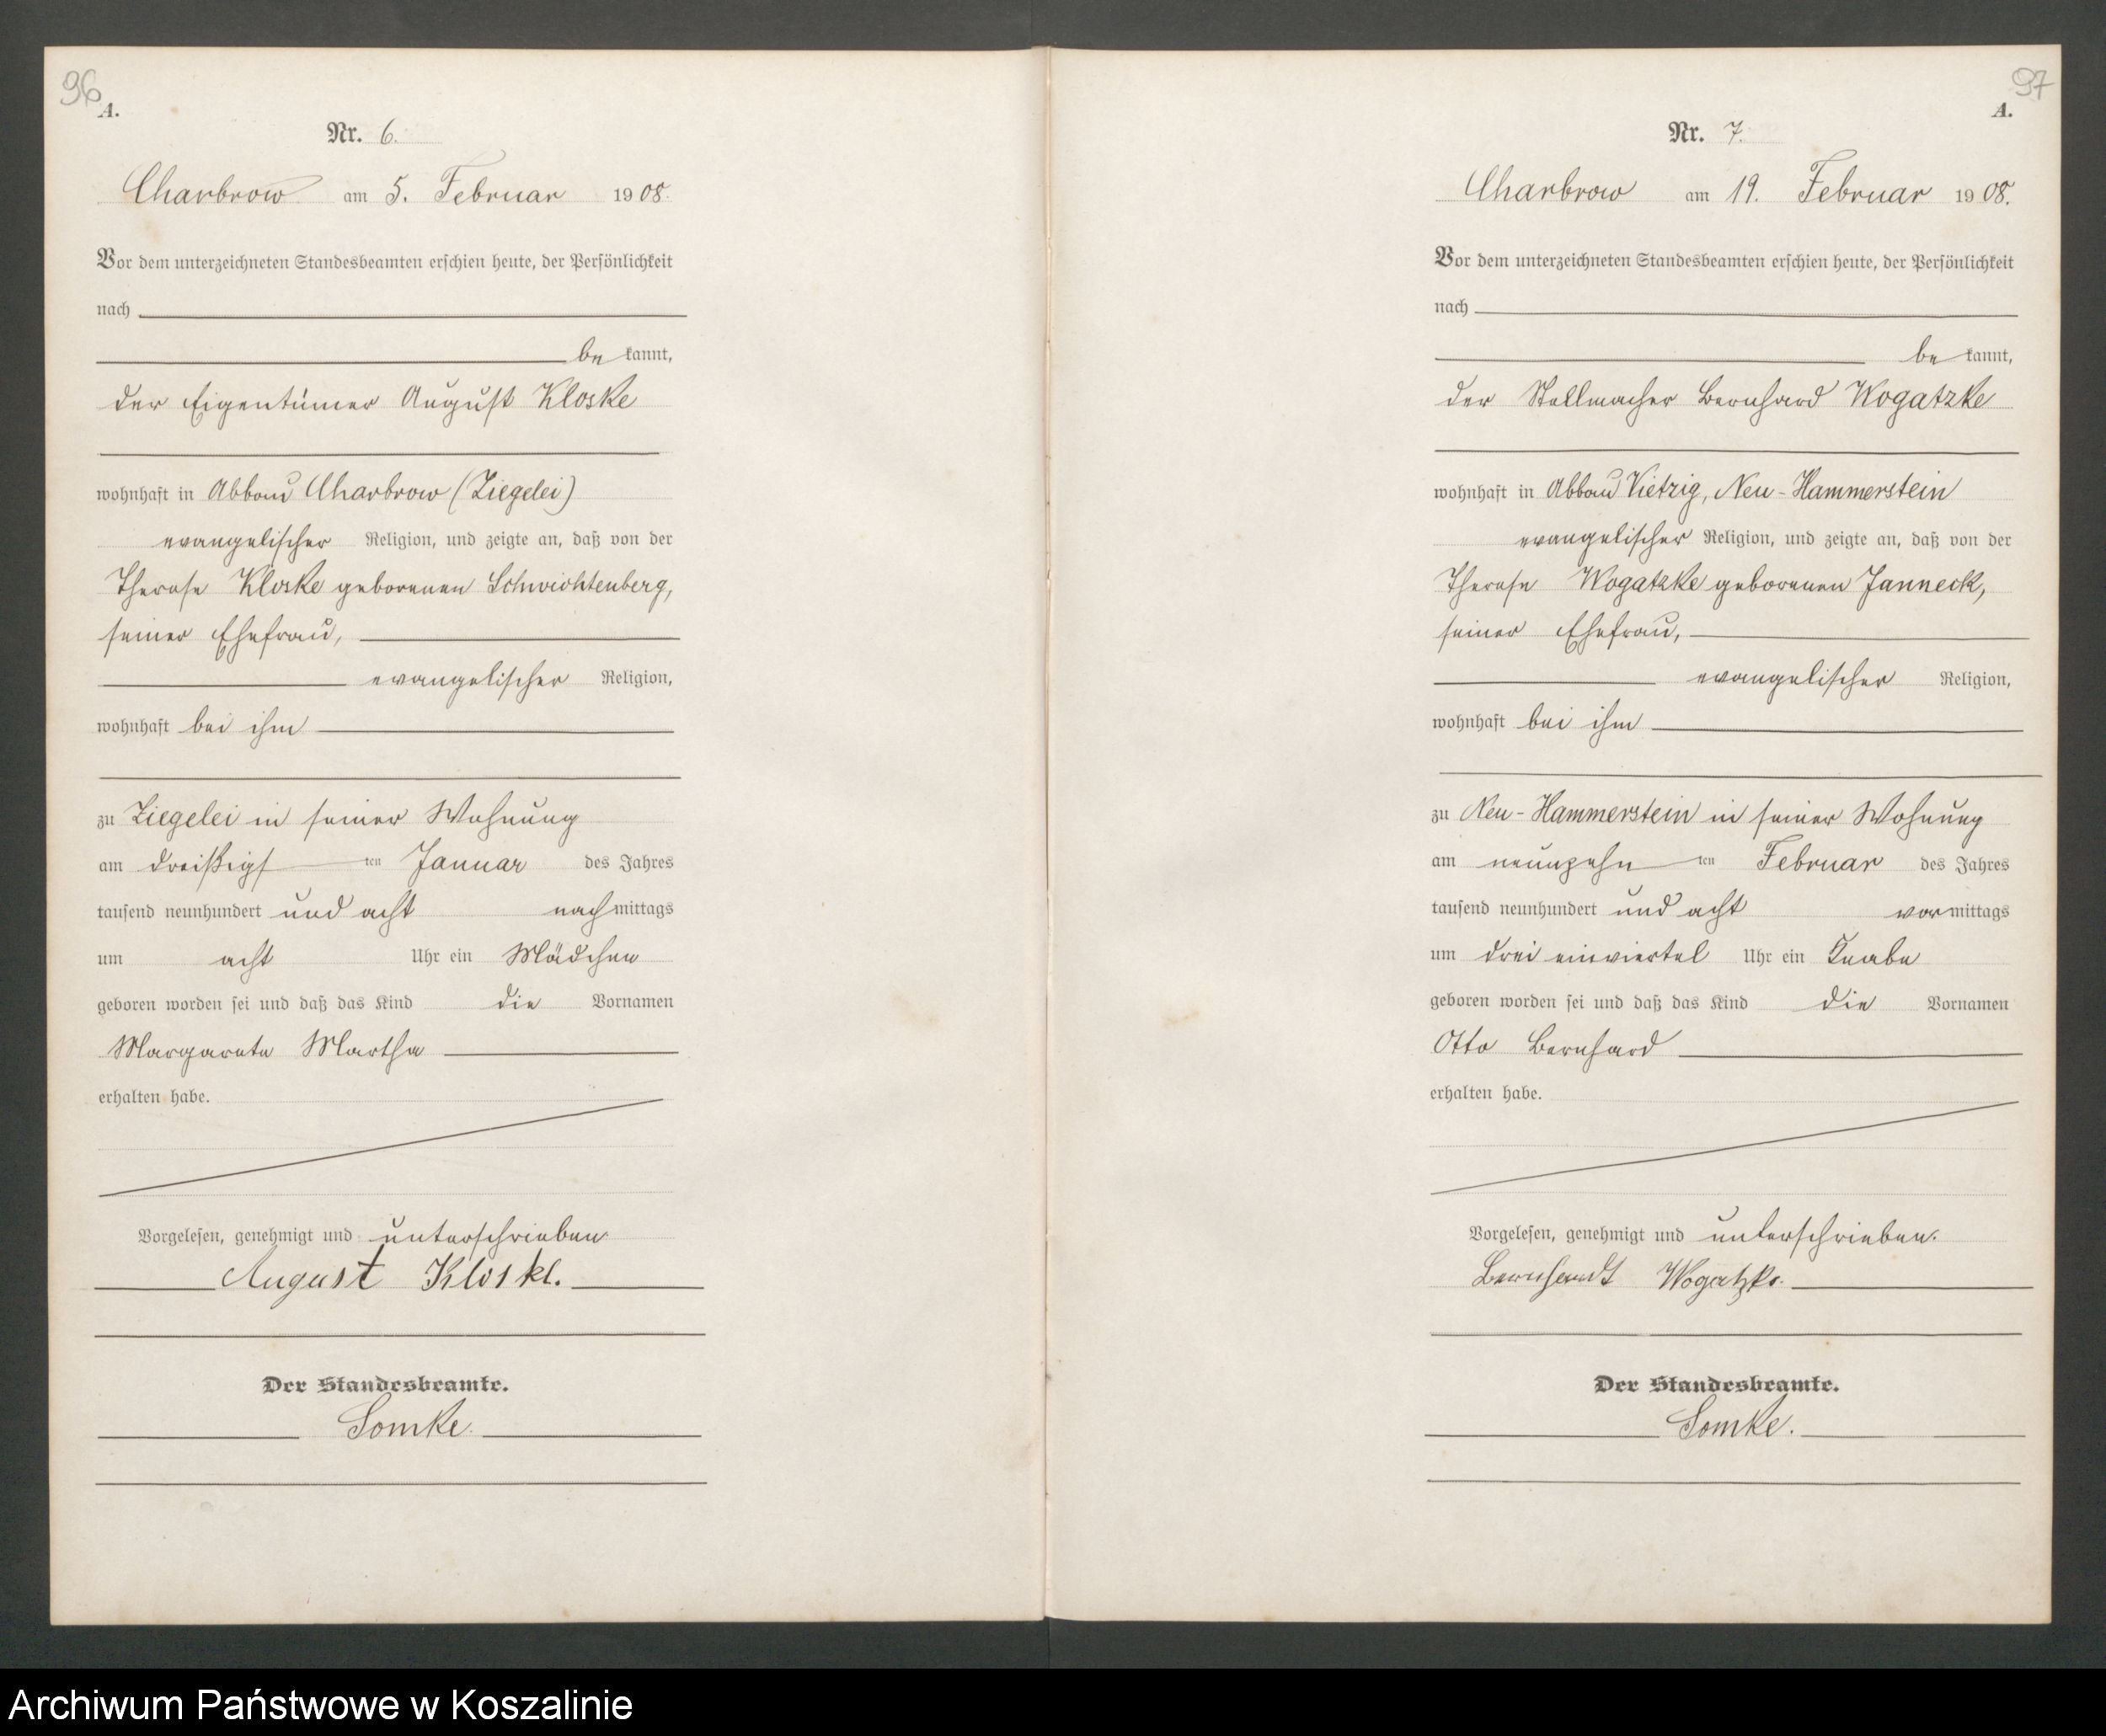 96
A.
Nr. 6.
Charbrow am 5. Februar 1908.
Vor dem unterzeichneten Standesbeamten erschien heute, der Persönlichkeit
nach
be kannt,
der Eigentümer August Kloske
wohnhaft in Abbau Charbrow (Ziegelei)
evangelischer Religion, und zeigte an, daß von der
Therese Kloske geborenen Schwichtenberg,
seiner Ehefrau,
evangelischer Religion,
wohnhaft bei ihm
zu Ziegelei in seiner Wohnung
am dreißigst ten Januar des Jahres
tausend neunhundert und acht nachmittags
um acht Uhr ein Mädchen
geboren worden sei und daß das Kind die Vornamen
Margarete Martha
erhalten habe.
Vorgelesen, genehmigt und unterschrieben
August Kloske.
Der Standesbeamte.
Somke.
97
A.
Nr. 7.
Charbrow am 19. Februar 1908.
Vor dem unterzeichneten Standesbeamten erschien heute, der Persönlichkeit
nach
be kannt,
der Stellmacher Bernhard Wogatzke
wohnhaft in Abbau Vietzig, Neu-Hammerstein
evangelischer Religion, und zeigte an, daß von der
Therese Wogatzke geborenen Janneck,
seiner Ehefrau,
evangelischer Religion,
wohnhaft bei ihm
zu Neu-Hammerstein in seiner Wohnung
am neunzehn ten Februar des Jahres
tausend neunhundert und acht vormittags
um drei einviertel Uhr ein Knabe
geboren worden sei und daß das Kind die Vornamen
Otto Bernhard
erhalten habe.
Vorgelesen, genehmigt und unterschrieben.
Bernhardt Wogatzke.
Der Standesbeamte.
Somke.
Archiwum Państwowe w Koszalinie